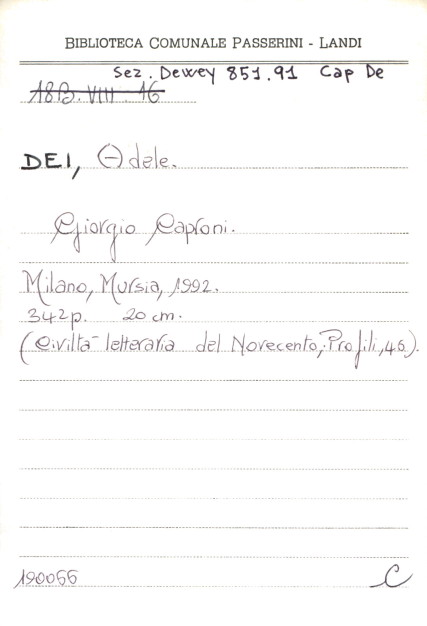 BIBLIOTECA COMUNALE PASSERINI - LANDI
Sez. Dewey 851.91 Cap De
A8B. VIII. 16
DEI, Adele.
Giorgio Caproni.
Milano, Mursia, 1992.
342 p. 20 cm.
(Civiltà letteraria del Novecento; Profili, 46).
190066 C